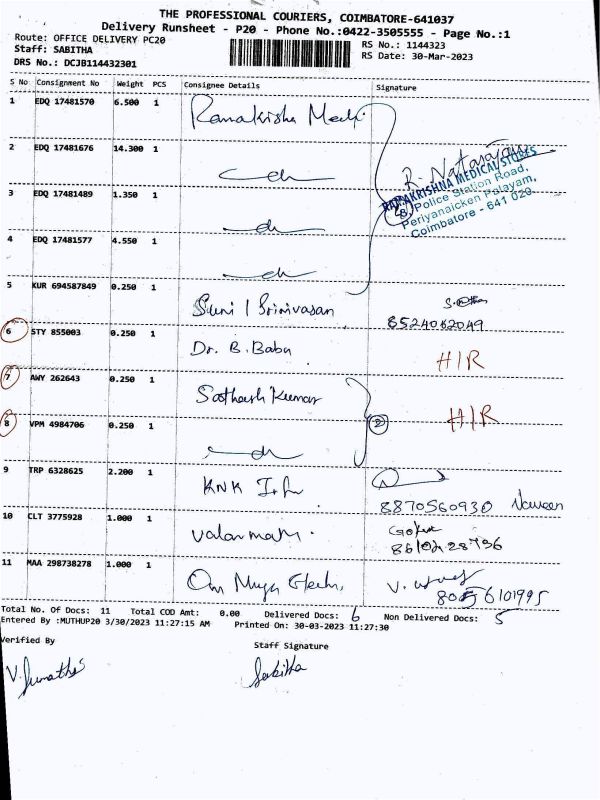 THE PROFESSIONAL COURIERS, COIMBATORE-641037
Delivery Runsheet - P20 - Phone No.:0422-3505555 - Page No.:1
Route: OFFICE DELIVERY PC20
RS No.: 1144323
Staff: SABITHA
RS Date: 30-Mar-2023
DRS No.: DCJB114432301
S No Consignment No Weight PCS Consignee Details Signature
1 EDQ 17481570 6.500 1 Ramakrisha
2 EDQ 17481676 14.300 1
R. Natarajan
RAMAKRISHNA MEDICAL STORES
8, Police Station Road,
Periyanaicken Palayam,
Coimbatore - 641 020
3 EDQ 17481489 1.350 1
4 EDQ 17481577 4.550 1
5 KUR 694587849 0.250 1 Suni / Srinivasan
8524042049
6 STY 855003 0.250 1 Dr. B. Babu H/R
7 AWY 262643 0.250 1 Sathash Kumar H/R
8 VPM 4984706 0.250 1 2
9 TRP 6328625 2.200 1 KNK
8870560930 Naveen
10 CLT 3775928 1.000 1 Valarmathi. Gokul
11 MAA 298738278 1.000 1 Om
8056101995
Total No. Of Docs: 11 Total COD Amt: 0.00 Delivered Docs: 6 Non Delivered Docs: 5
Entered By :MUTHUP20 3/30/2023 11:27:15 AM Printed On: 30-03-2023 11:27:30
Verified By Staff Signature
V. Sumathi Sabitha